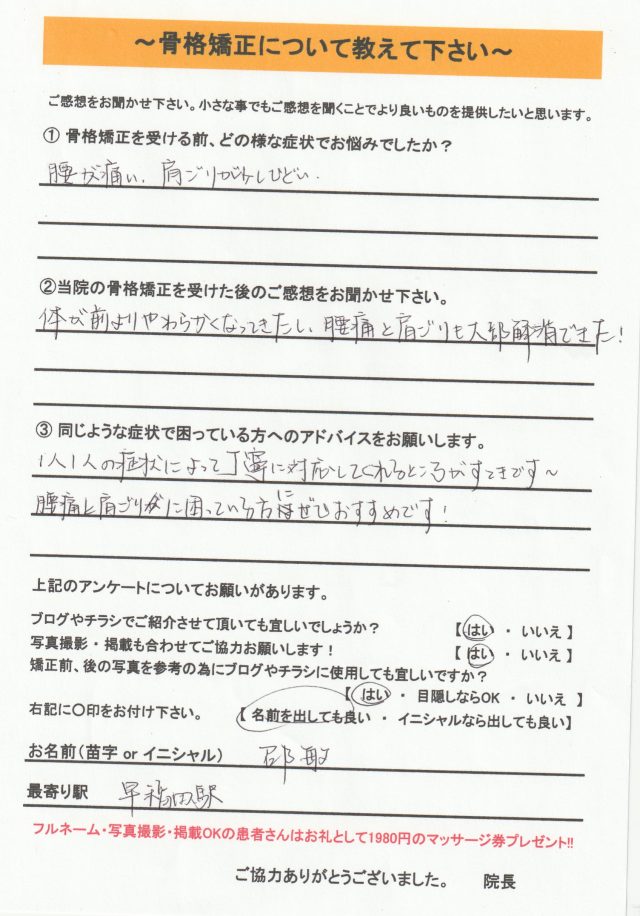 ～骨格矯正について教えて下さい～
ご感想をお聞かせ下さい。小さな事でもご感想を聞くことでより良いものを提供したいと思います。
① 骨格矯正を受ける前、どの様な症状でお悩みでしたか？
腰が痛い、肩ごりが少しひどい.
②当院の骨格矯正を受けた後のご感想をお聞かせ下さい。
体が前よりやわらかくなってきたし、腰痛と肩ごりも大部解消できた!
③ 同じような症状で困っている方へのアドバイスをお願いします。
1人1人の症状によって丁寧に対応してくれるところがすてきです～
腰痛と肩ごりに困っている方にぜひおすすめです!
上記のアンケートについてお願いがあります。
ブログやチラシでご紹介させて頂いても宜しいでしょうか？ 【 はい ・ いいえ 】
写真撮影・掲載も合わせてご協力お願いします！ 【 はい ・ いいえ 】
矯正前、後の写真を参考の為にブログやチラシに使用しても宜しいですか？
【 はい ・ 目隠しならOK ・ いいえ 】
右記に〇印をお付け下さい。 【 名前を出しても良い ・ イニシャルなら出しても良い】
お名前（苗字 or イニシャル） 敏
最寄り駅 早稲田駅
フルネーム・写真撮影・掲載OKの患者さんはお礼として1980円のマッサージ券プレゼント!!
ご協力ありがとうございました。 院長